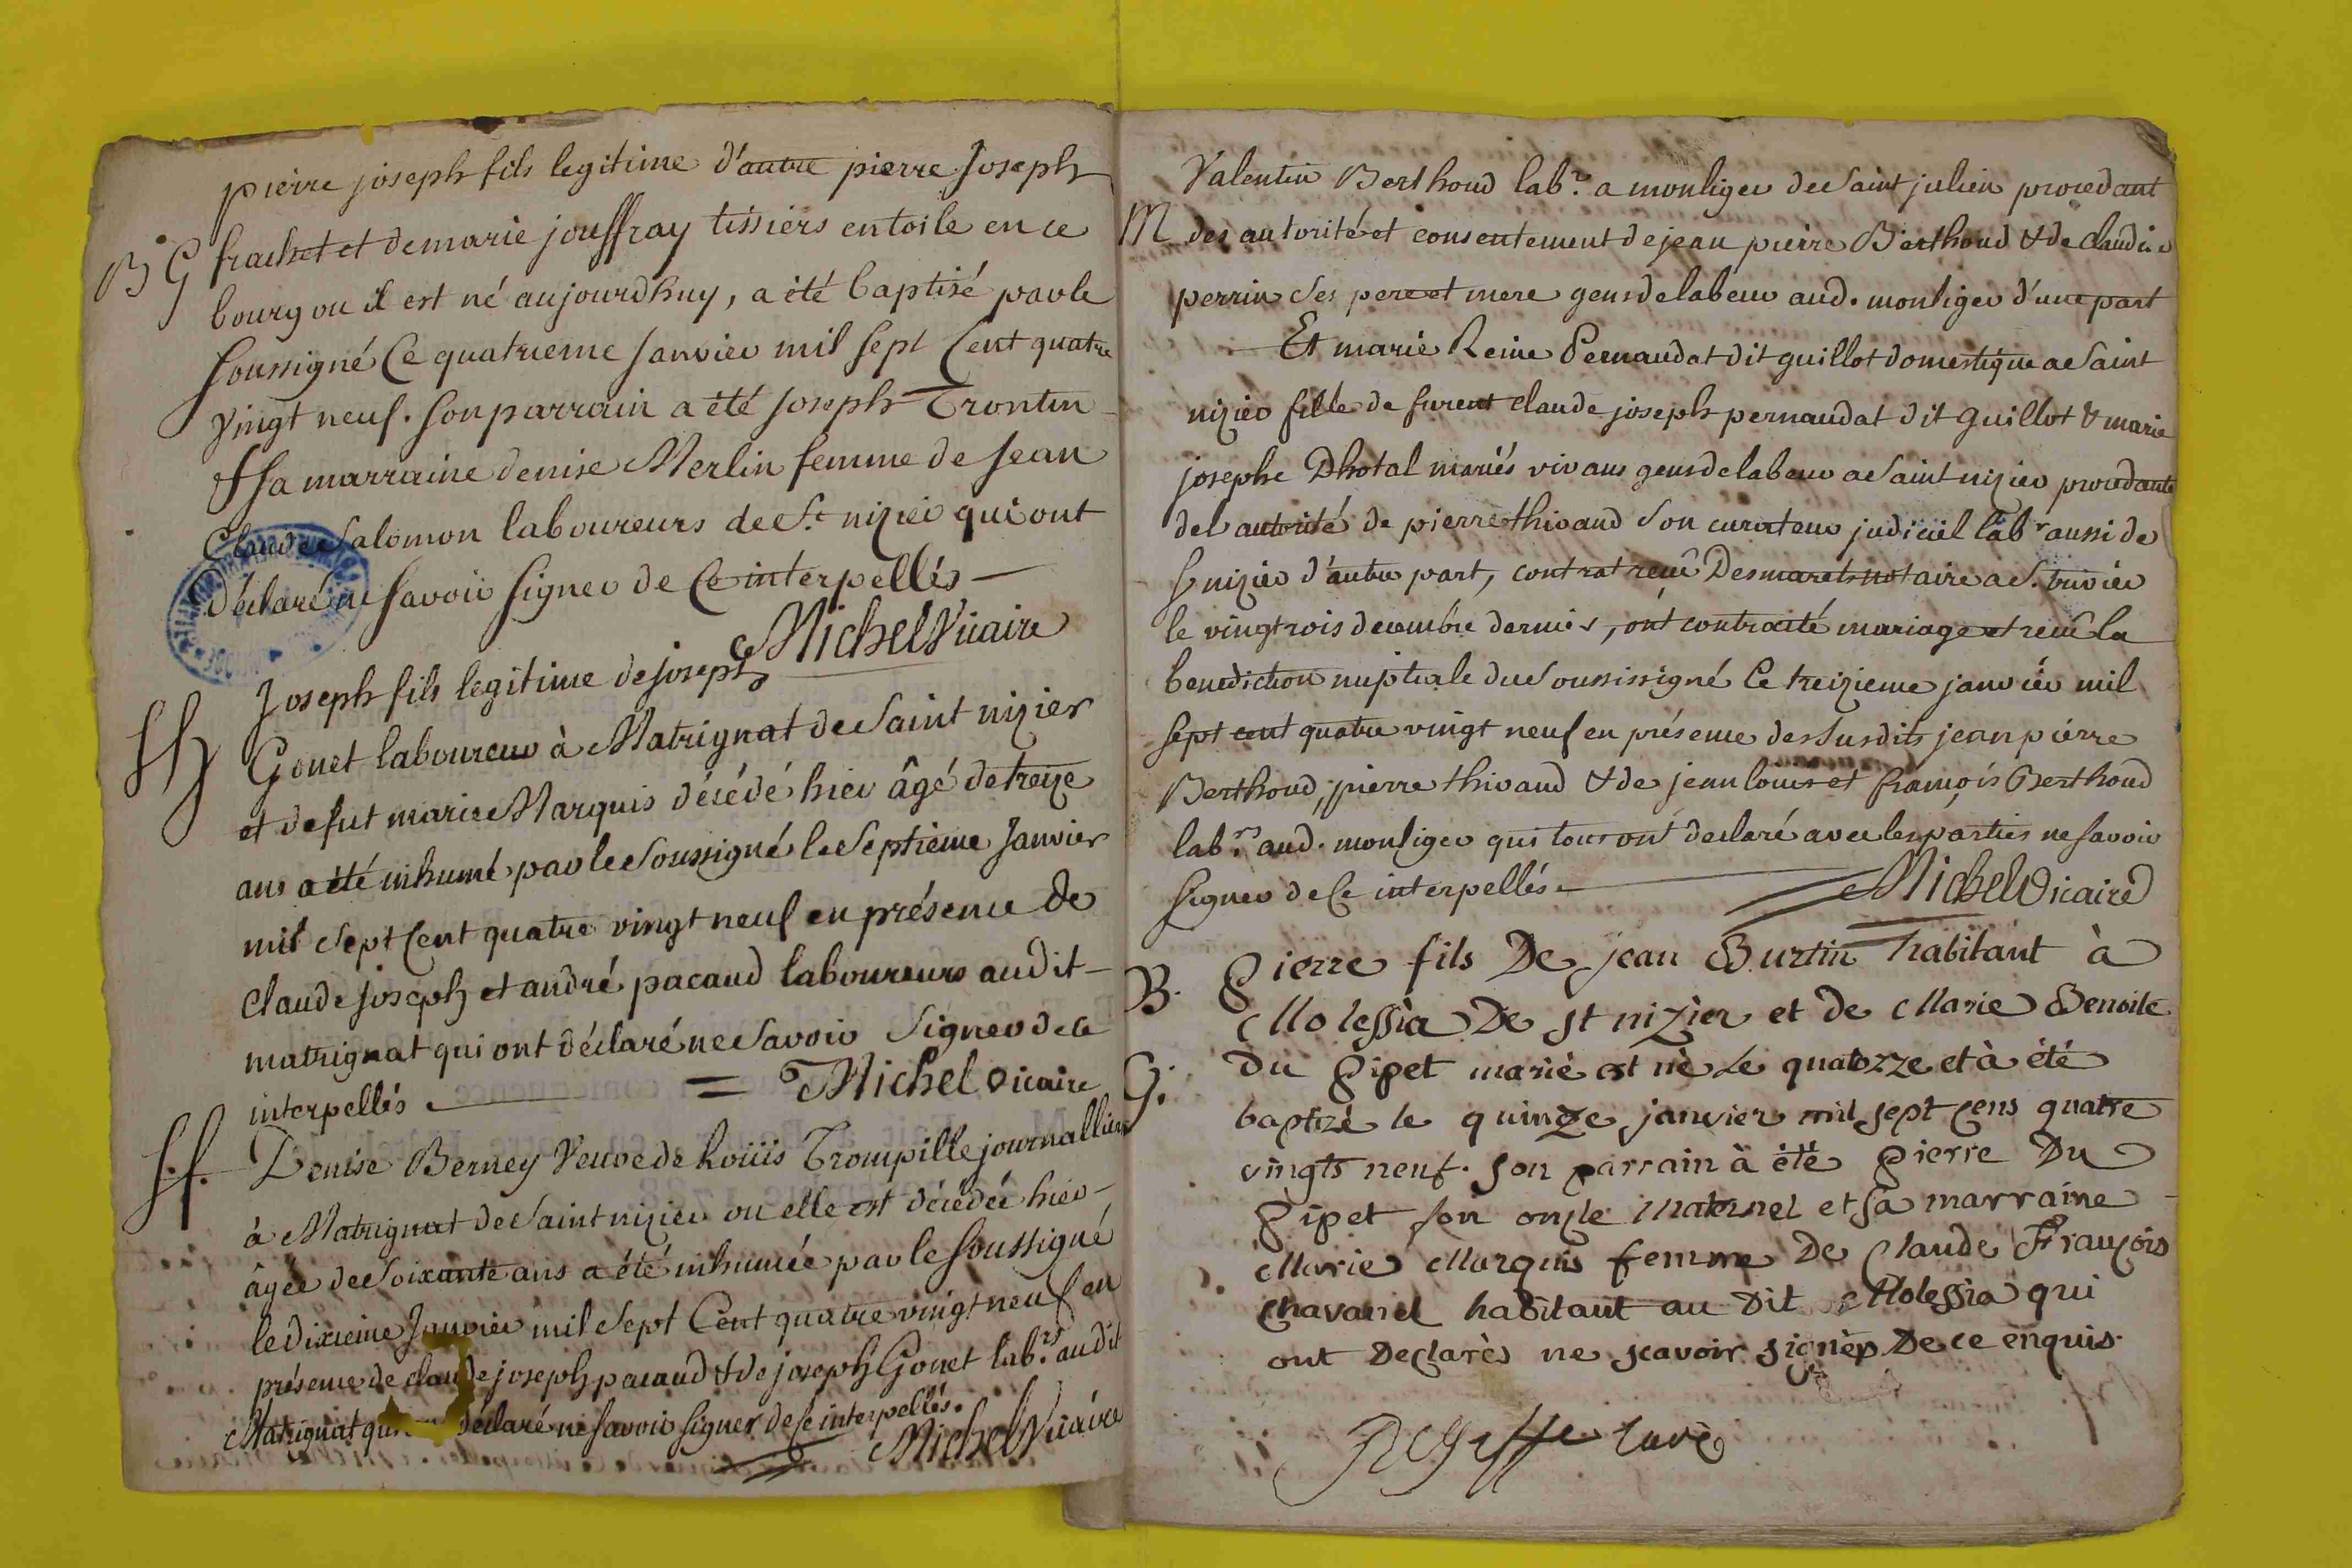 pierre joseph fils legitime d'autre pierre Joseph
B G frachet et de marie jouffray tissiers en toile en ce
bourg ou il est né aujourdhuy, a été baptisé par le
soussigné Ce quatrieme Janvier mil sept Cent quatre
vingt neuf. son parrain a été joseph Trontin
& sa marraine denise Merlin femme de Jean
Claude Salomon laboureurs de St nizier qui ont
déclaré ne savoir signer de Ce interpellés
Michel Vicaire
Joseph fils legitime de joseph
Gonet laboureur à Matrignat de Saint nizier
et de fut marie Marquis décédé hier âgé de treize
ans a été inhumé par le soussigné le Septieme Janvier
mil Sept Cent quatre vingt neuf en présence de
claude joseph et andré pacaud laboureurs audit
matrignat qui ont déclaré ne Savoir Signer de ce
interpellés = Michel vicaire
Denise Berney Veuve de Louis Trompille journallier
à Matrignat de Saint nizier ou elle est décédée hier
âgée de Soixante ans a été inhumée par le soussigné
le dixieme Janvier mil Sept Cent quatre vingt neuf en
présence de claude joseph pacaud & de joseph Gonet labrs audit
Matrignat qui déclaré ne savoir signer de Ce interpellés.
Michel Vicaire
Valentin Berthoud labr. a monliger de Saint julien procedant
M des autorité et consentement de jean pierre Berthoud & de Claudine
perrin Ses pere et mere gens de labeur aud. monliger d'une part
Et marie Reine Pernaudat dit guillot domestique a Saint
nizier fille de furent claude joseph pernaudat dit guillot & marie
josephe Dhotal mariés vivans gens de labeur a Saint nizier procedante
de l autorité de pierre thivaud Son curateur judiciel labr aussi de
S nizier d'autre part, contrat reçu Desmarets notaire a S. trivier
le vingt rois decembre dernier, ont contracté mariage et recu la
benediction nuptiale du Soussissigné Ce treizieme janvier mil
sept cent quatre vingt neuf en présence des susdits jean pierre
Berthoud, pierre thivaud & de jean louis et françois Berthoud
labrs. aud. monliger qui tous ont declaré avec les parties ne savoir
signer de Ce interpellés Michel Vicaire
B. Pierre fils De jean Burtin habitant à
Molessia De st nizier et de Marie Benoite
G. Du Pipet marié est né Le quatorze et à été
baptizé le quinze janvier mil sept cens quatre
vingts neuf. son parrain à été Pierre Du
Pipet son oncle maternel et sa marraine
Marie Marquis femme De Claude François
Chavanel habitant au Dit Molessia qui
ont Declarés ne scavoir signer De ce enquis.
curé